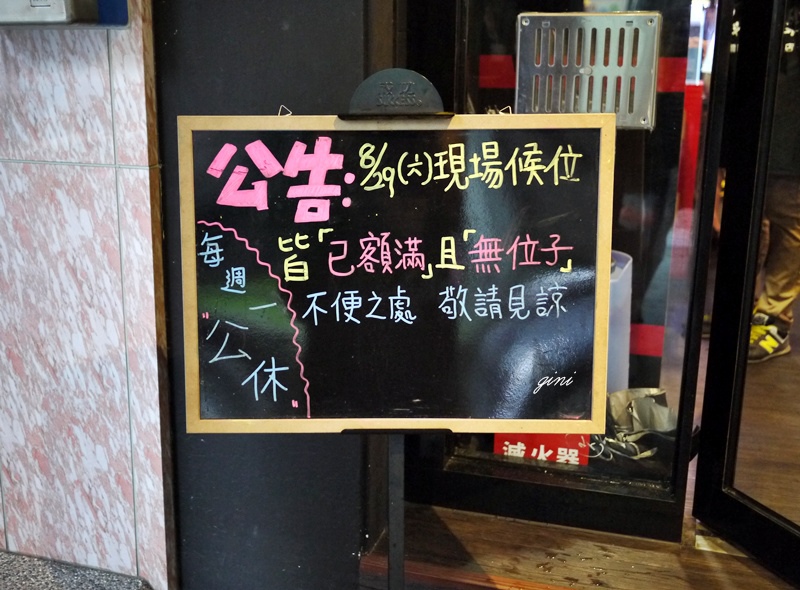 公告:8/29(六)現場候位
皆「已額滿」且「無位子」
不便之處 敬請見諒
每週一
"公休"
gini
滅火器